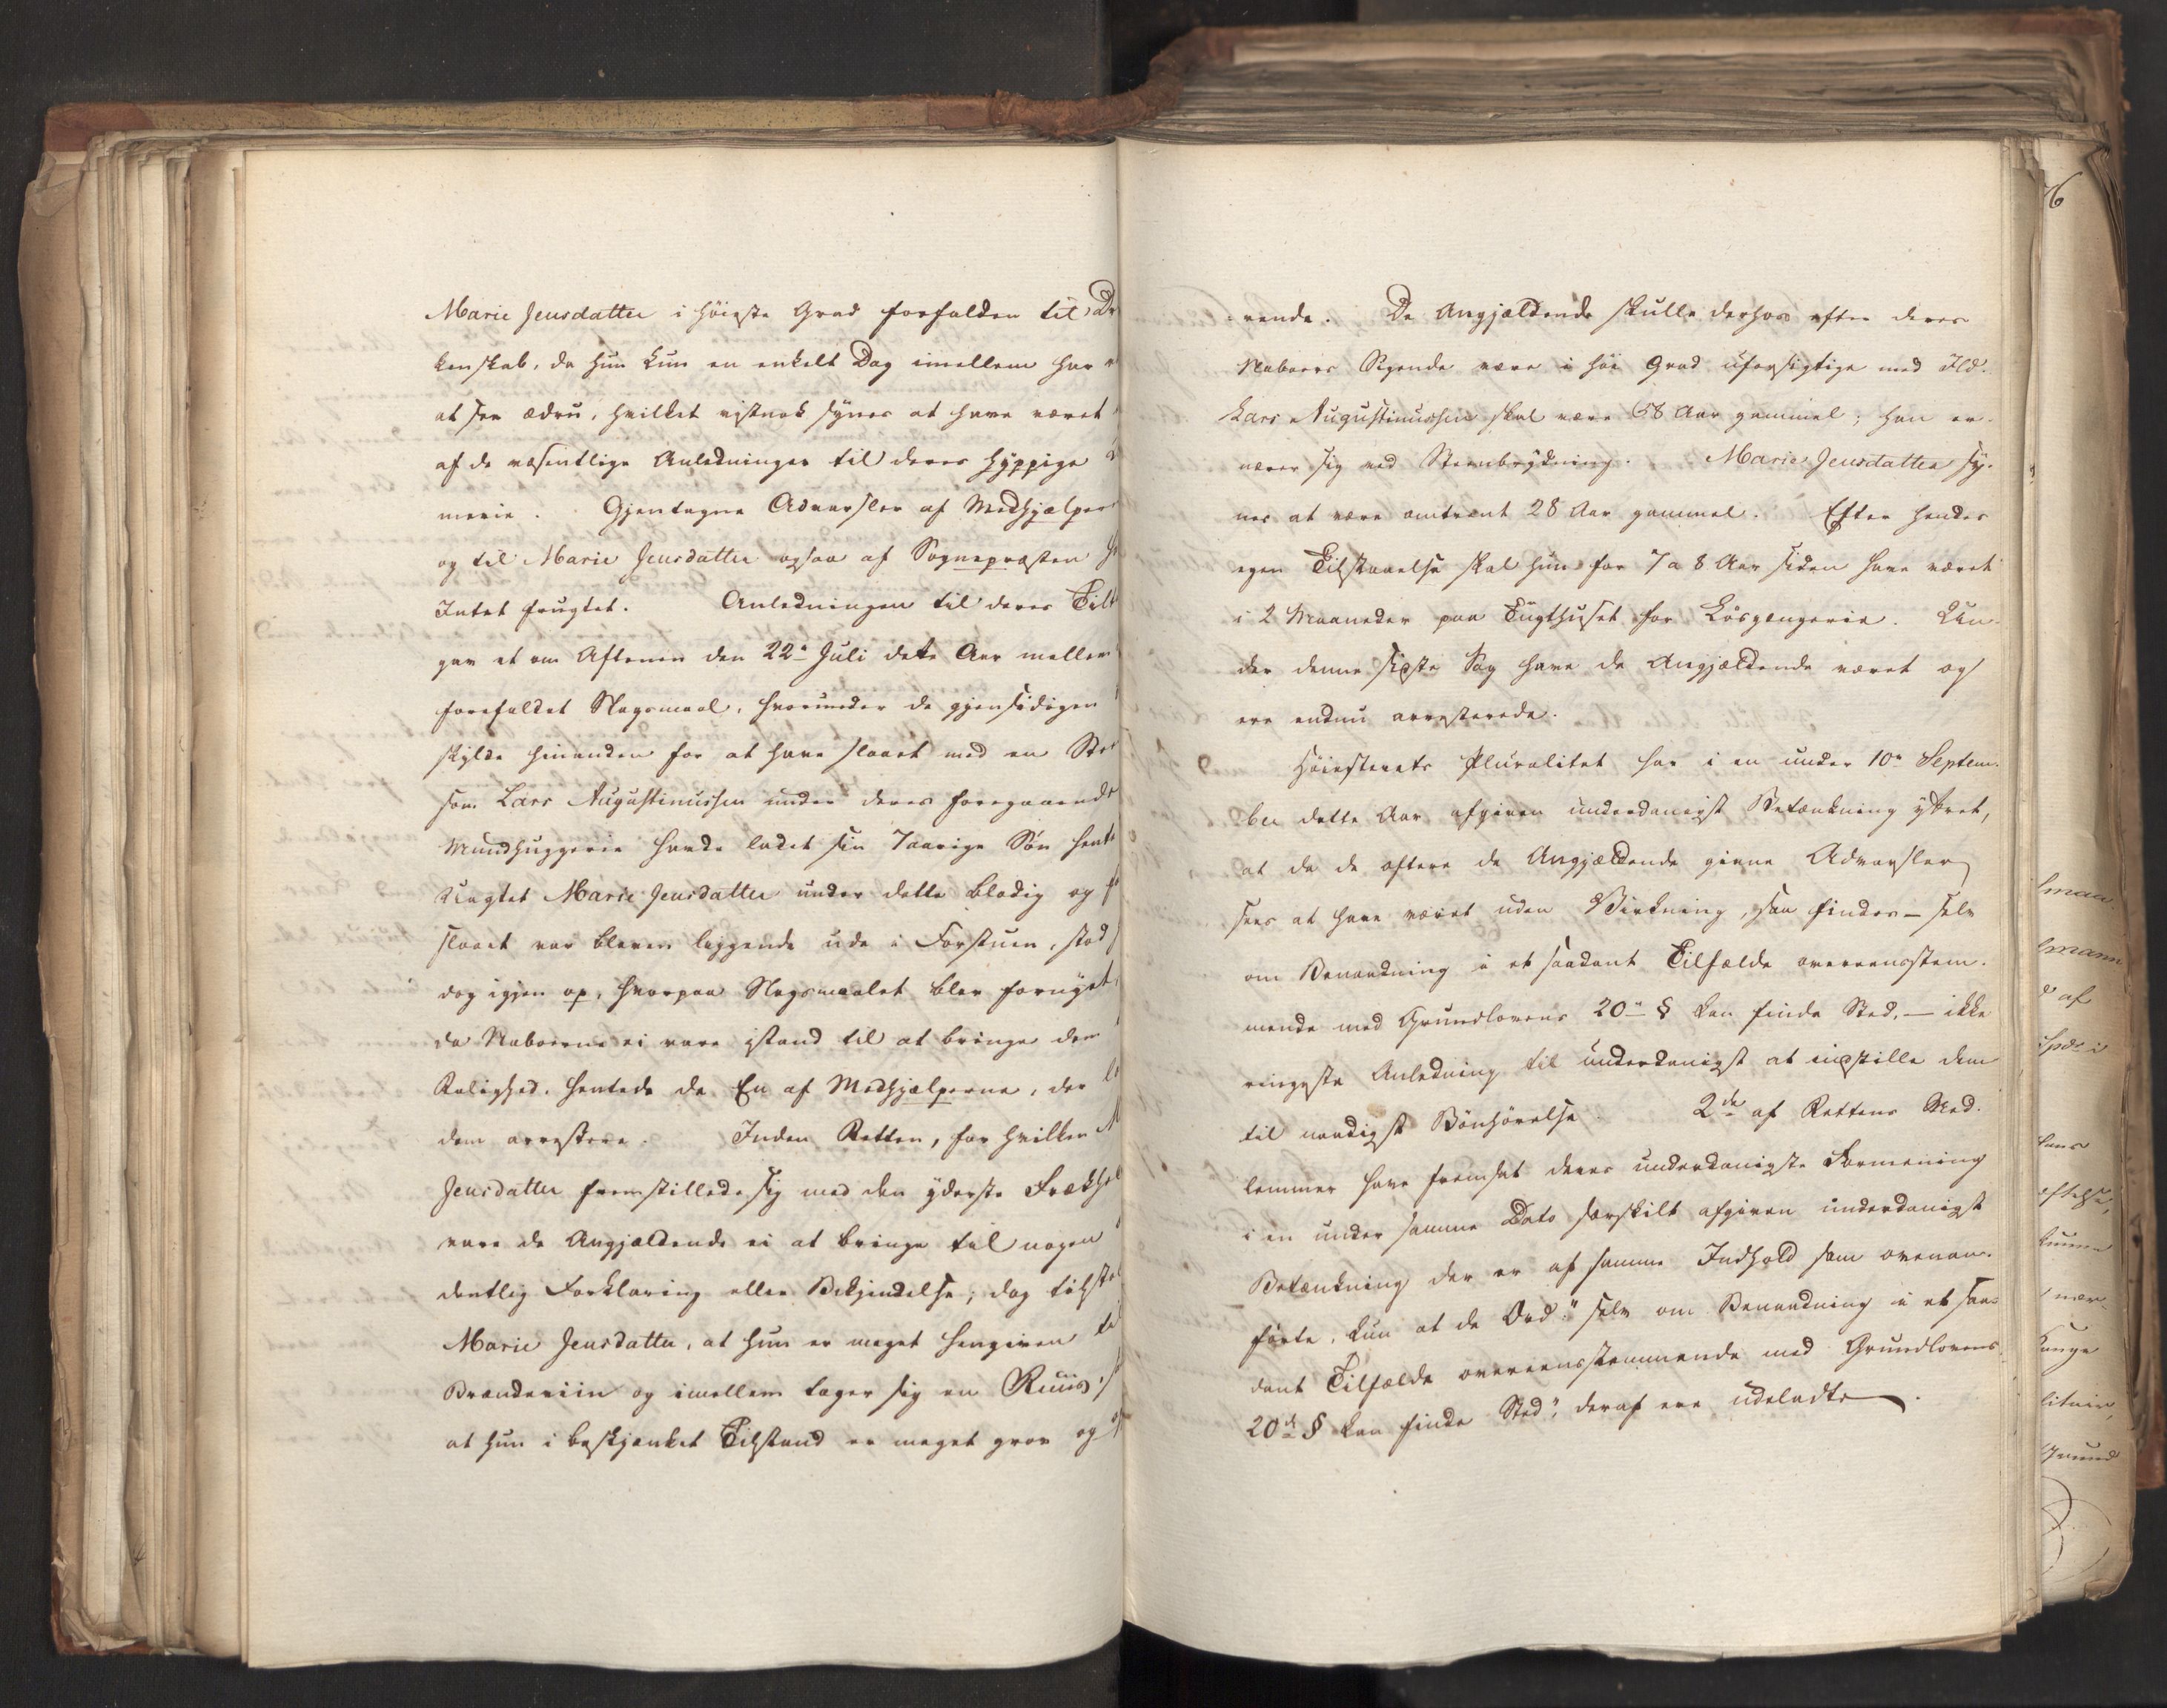 Marie Jensdatter i høieste Grad forfalden til Dr
kenskab, da hun kun en enkelt Dag imellem har
at see ædru, hvilket vistnok synes at have været
af de væsentlige Anledninger til deres hyppige
merie. Gjentagne Advarsler af Medhjælper
og til Marie Jensdatter ogsaa af Sognepræsten h
Intet frugtet. Anledningen til deres Tilt
gav et om Aftenen den 22de Juli dette Aar mellem
forefaldet Slagsmaal, hvorunder de gjensidigen
skylde hinanden for at have slaaet med en Sto
som Lars Augustinussen under deres foregaaende
Mundhuggerie havde ladet sin 7aarige Søn hente
Uagtet Marie Jensdatter under dette blodig og
slaaet var bleven liggende ude i Forstuen, stod
dog igjen op, hvorpaa Slagsmaalet blev fornyet,
da Naboerne ei vare istand til at bringe dem
Rolighed, hentede de En af Medhjælperne, der l
dem arrestere. Inden Retten, for hvilken M
Jensdatter fremstillede sig med den yderste Frækhe
vare de Angjældende ei at bringe til nogen
dentlig Forklaring eller Bekjendelse; dog tilsto
Marie Jensdatter, at hun er meget hengiven til
Brændeviin og imellem tager sig en Ruus,
at hun i beskjænket Tilstand er meget grov og
rende. De Angjældende skulle derhos efter deres
Naboers Sigende være i høi Grad uforsigtige med Ild.
Lars Augustinussen skal være 58 Aar gammel; han er-
nærer sig ved Steenbrydning. Marie Jensdatter sy-
nes at være omtrent 28 Aar gammel. Efter hendes
egen Tilstaaelse skal hun for 7 a 8 Aar siden have været
i 2 Maaneder paa Tugthuset for Løsgængerie. Un-
der denne sidste Sag have de Angjældende været og
ere endnu arresterede.
Høiesterets Pluralitet har i en under 10de Septem-
ber dette Aar afgiven underdanigst Betænkning yttret,
at da de oftere de Angjældende givne Advarsler
sees at have været uden Virkning, saa findes – selv
om Benaadning i et saadant Tilfælde overeensstem-
mende med Grundlovens 20de § kan finde Sted, – ikke
ringeste Anledning til underdanigst at indstille dem
til naadigst Bønhørelse. 2de af Rettens Med-
lemmer have fremsat deres underdanigste Formening
i en under samme Dato særskilt afgiven underdanigst
Betænkning der er af samme Indhold som ovenan-
førte, kun at de Ord: "selv om Benaadning i et saa-
dant Tilfælde overeensstemmende med Grundlovens
20de § kan finde Sted", deraf ere udeladte.